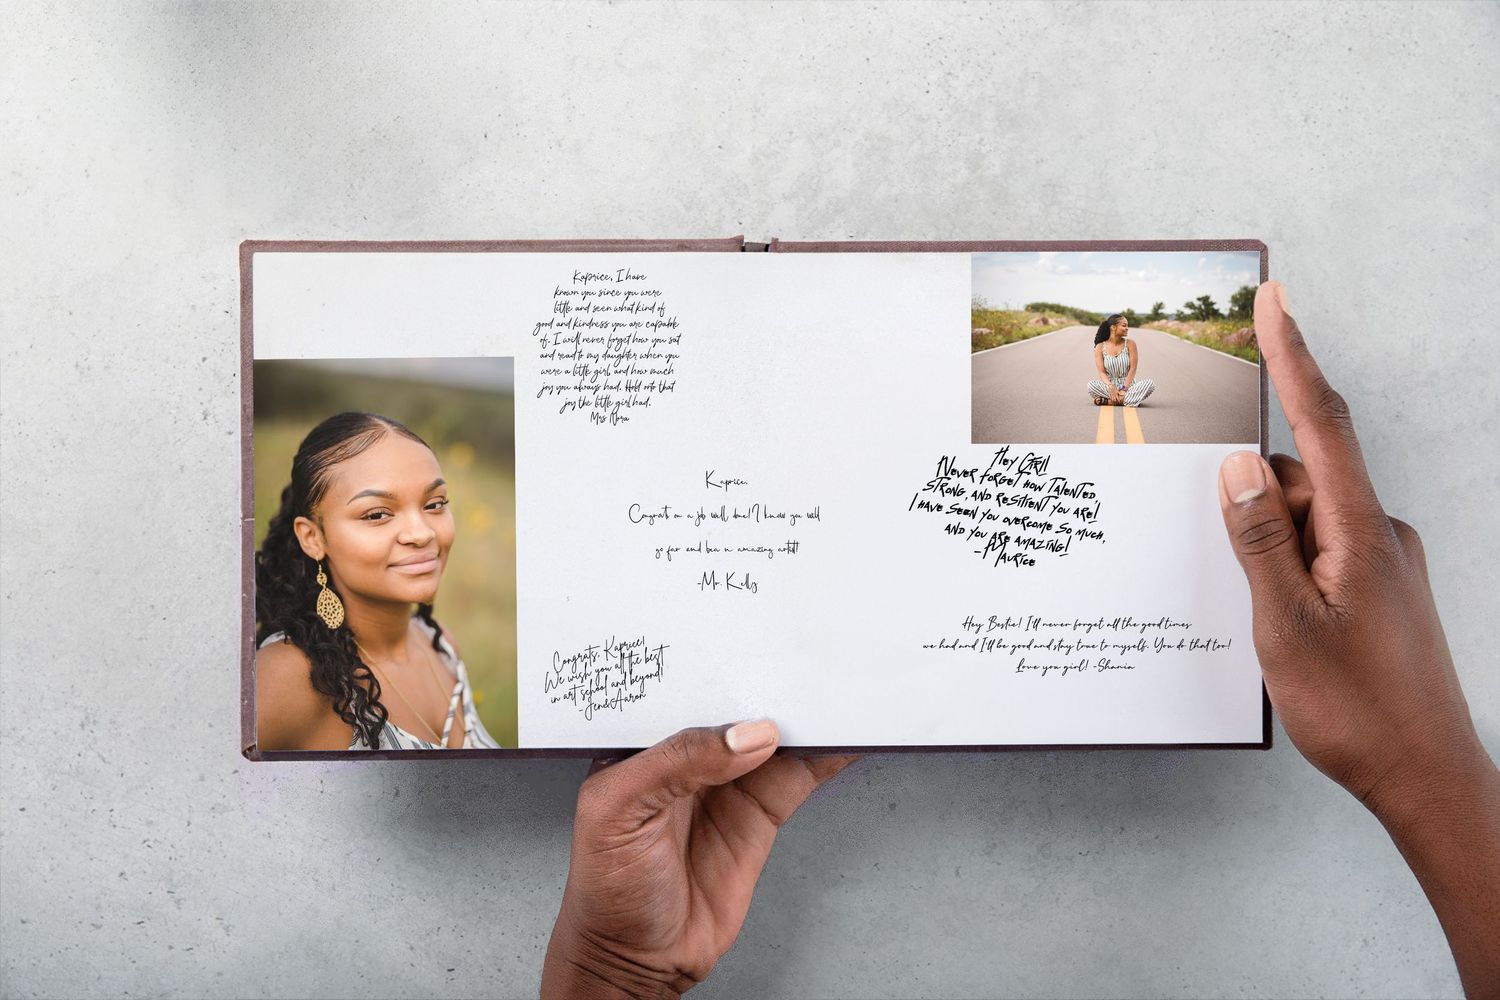 Kaprice, I have
known you since you were
little and seen what kind of
good and kindness you are capable
of. I will never forget how you sat
and read to my daughter when you
were a little girl, and how much
joy you always had. Hold onto that
joy the little girl had.
Mrs Nora
Kaprice,
Congrats on a job well done! I know you will
go far and be a n amazing artist!
-Mr. Kelly
Congrats, Kaprice!
We wish you all the best
in art school and beyond!
-Jen&Aaron
Hey Girl!
Never forget how talented,
strong, and resilient you are!
I have seen you overcome so much,
and you are amazing!
-Aurice
Hey Bestie! I'll never forget all the good times
we had and I'll be good and stay true to myself. You do that too!
Love you girl! -Shania